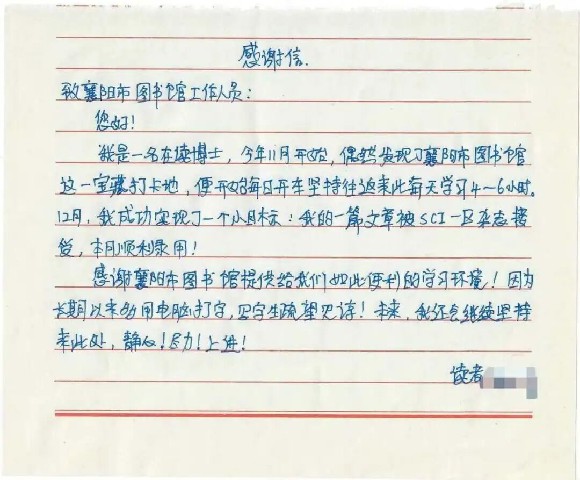 感谢信.
致襄阳市图书馆工作人员:
您好!
我是一名在读博士,今年11月开始,偶然发现了襄阳市图书馆
这一宝藏打卡地,便开始每日开车坚持往返来此每天学习4~6小时。
12月,我成功实现了一个小目标:我的一篇文章被SCI一区杂志接
受,本月顺利录用!
感谢襄阳市图书馆提供给我们如此便利的学习环境!因为
长期以来多用电脑打字,写字生疏望见谅!未来,我还会继续坚持
来此处,静心!尽力!上进!
读者